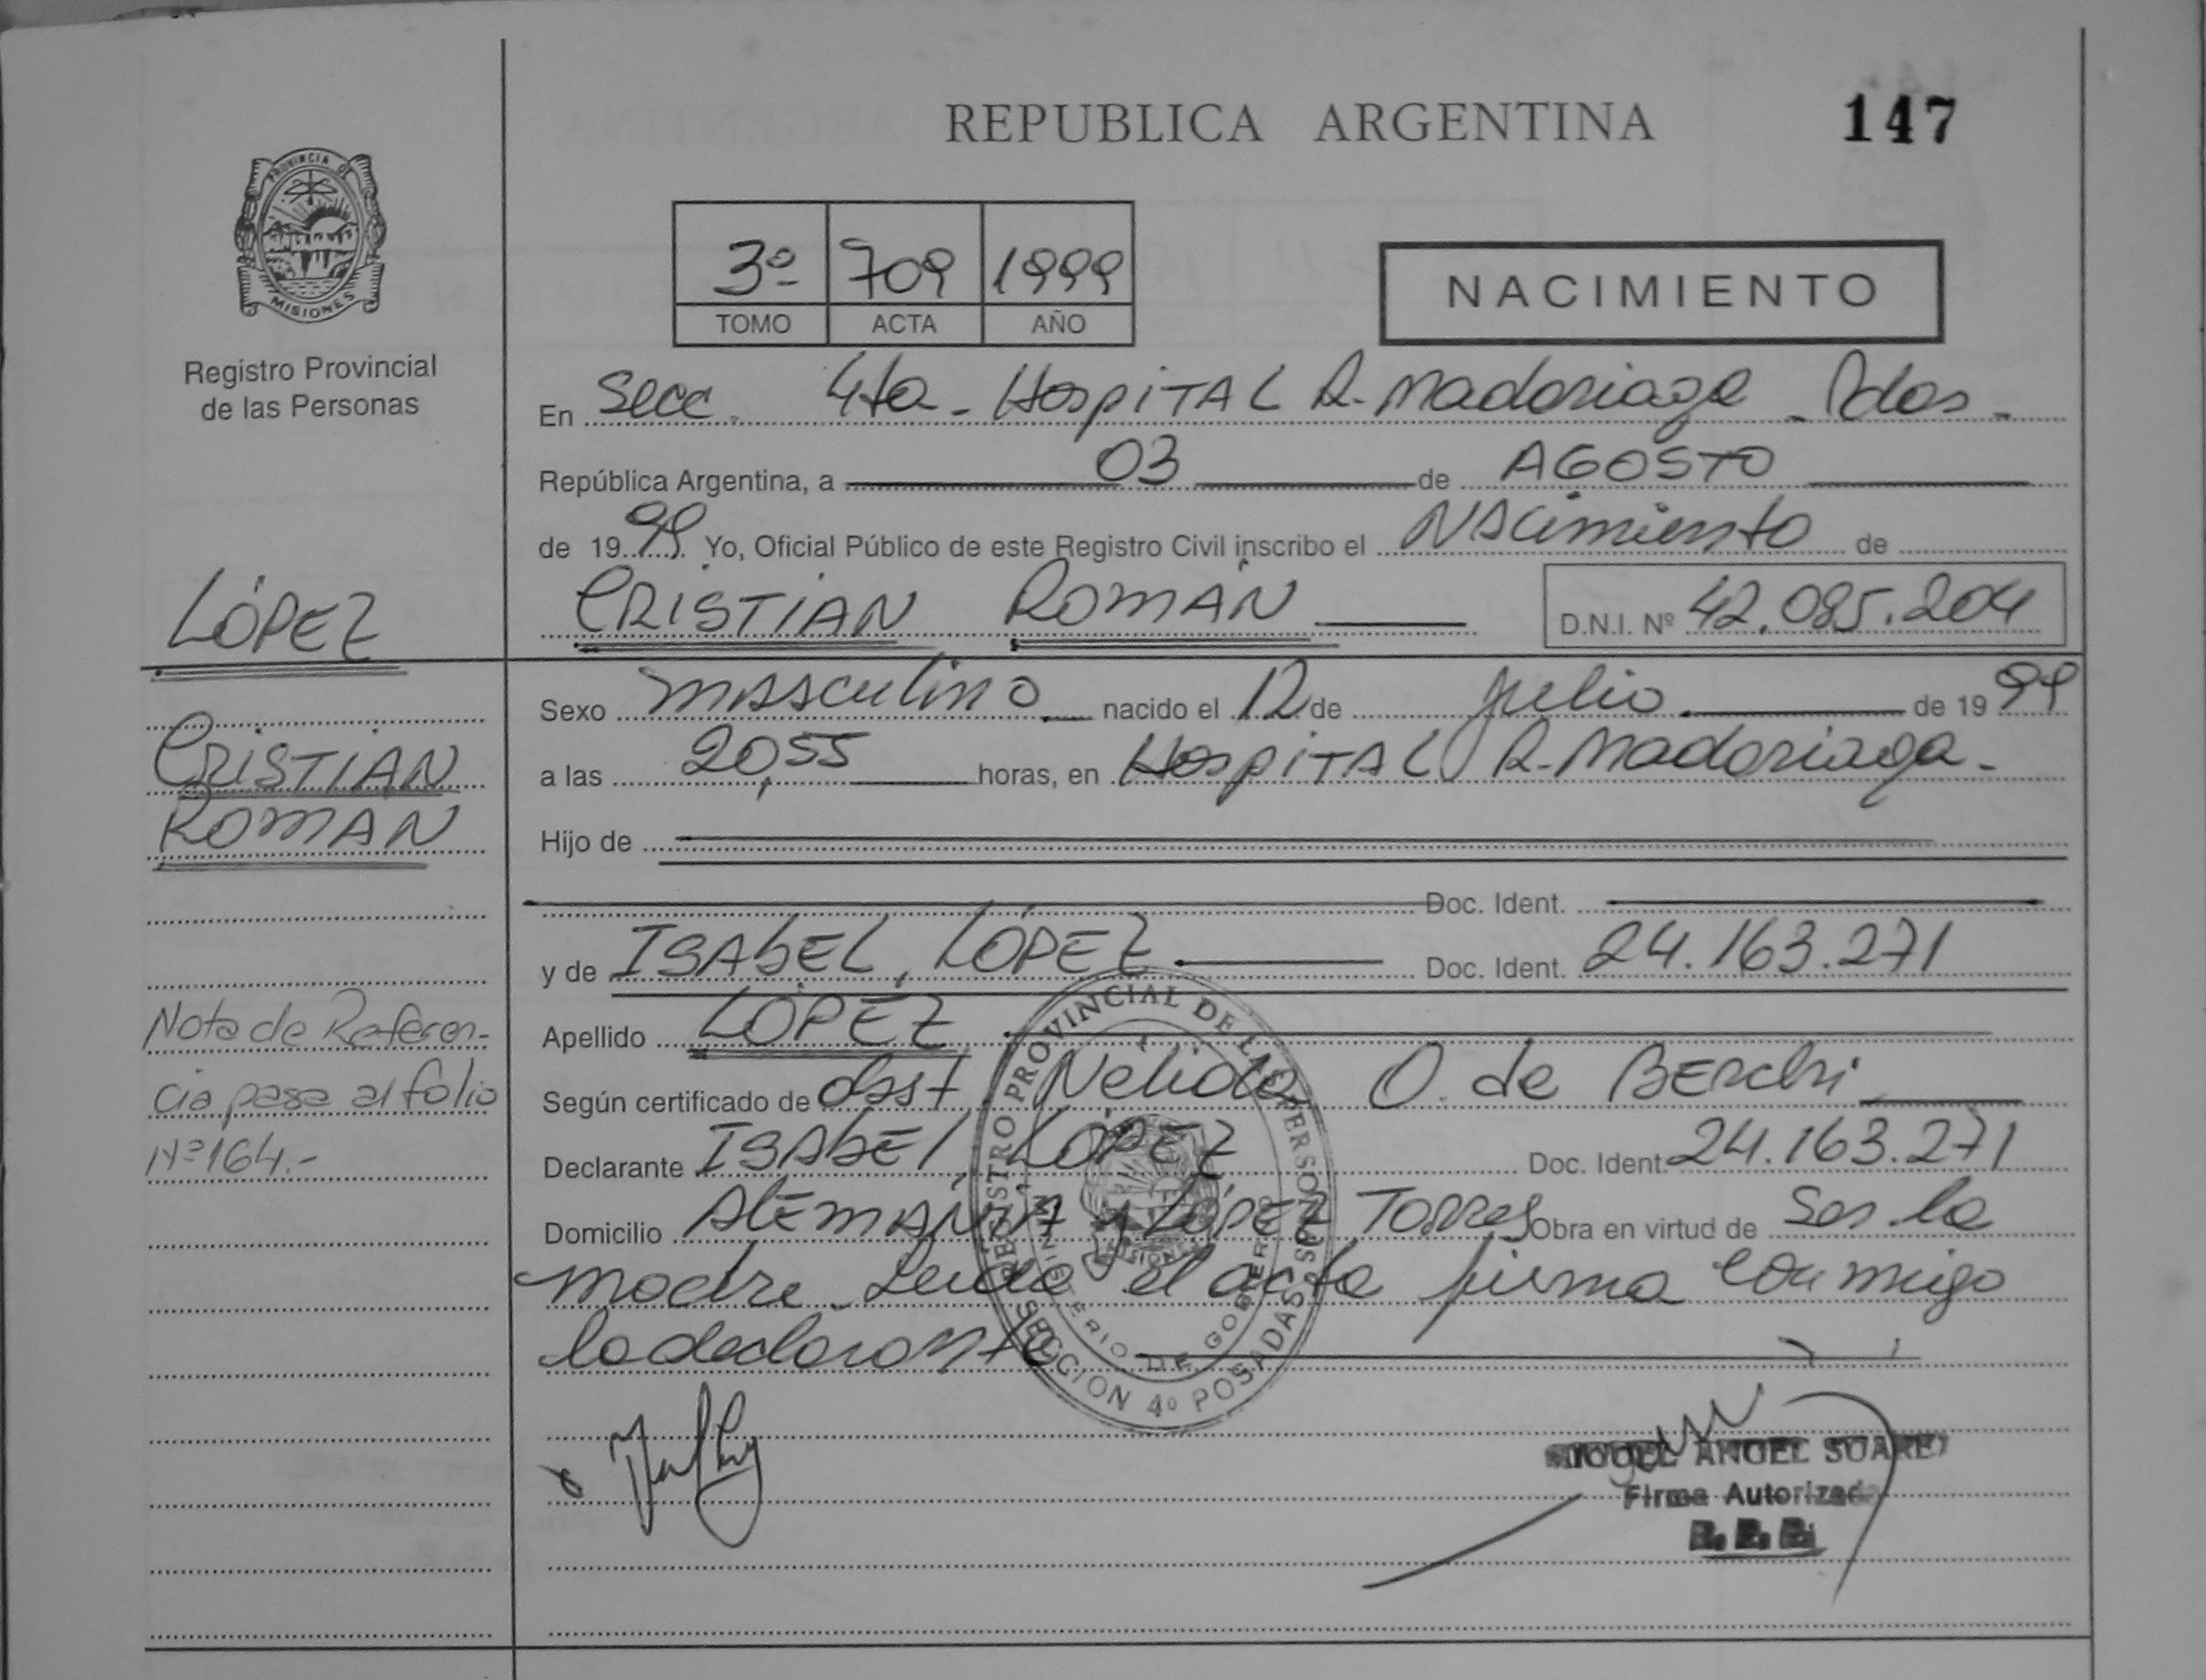 REPUBLICA ARGENTINA
147
PROVINCIA DE
MISIONES
Registro Provincial
de las Personas
3º 709 1999
TOMO ACTA AÑO
NACIMIENTO
En Secc. 4ta - HOSPITAL R. Madariaga - Pdas -
República Argentina, a 03 de AGOSTO
de 1999. Yo, Oficial Público de este Registro Civil inscribo el NAcimiento de
CRISTIAN ROMÁN D.N.I. Nº 42.085.204
LÓPEZ
CRISTIAN
ROMAN
Sexo mAsculino nacido el 12 de julio de 1999
a las 20,55 horas, en HOSPITAL R. Madariaga -
Hijo de
Doc. Ident.
y de ISABEL, LÓPEZ Doc. Ident. 24.163.271
Apellido LÓPEZ
Según certificado de obst. Nelida O. de BERchi
Declarante ISABEL, LÓPEZ Doc. Ident. 24.163.271
Domicilio ALEMANIA y LÓPEZ TORRES Obra en virtud de Ser la
madre. Leida el acta firma conmigo
la declarante
Nota de Referen-
cia pasa al folio
Nº 164.-
REGISTRO PROVINCIAL DE LAS PERSONAS
MINISTERIO DE GOBIERNO
MISIONES
SECCION 4º POSADAS
MIGUEL ANGEL SUAREZ
Firma Autorizada